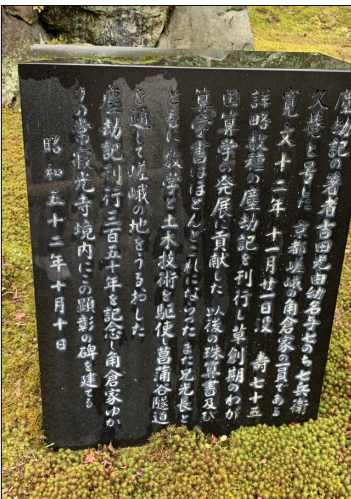 塵劫記の著者吉田光由幼名与七のち七兵衛
久菴と号した 京都嵯峨の角倉家の一員である
寛文十二年十一月廿一日没 寿七十五
詳略数種の塵劫記を刊行し草創期のわが
国算学の発展に貢献した 以後の珠算書及び
算学書はほとんどこれにならった また兄光長と
ともに数学と土木技術を駆使し菖蒲谷隧道
を通して嵯峨の地をうるおした
塵劫記刊行三百五十年を記念し角倉家ゆか
りの常寂光寺境内にこの顕彰の碑を建てる
昭和五十二年十月十日